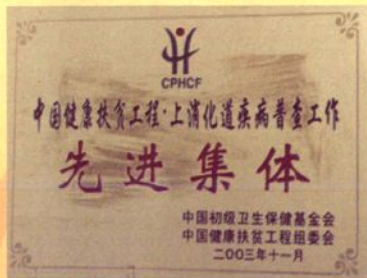 CPHCF
中国健康扶贫工程·上消化道疾病普查工作
先进集体
中国初级卫生保健基金会
中国健康扶贫工程组委会
二00三年十一月